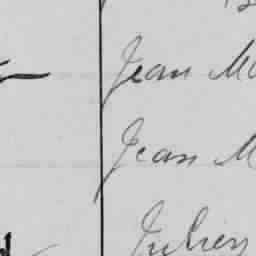 Jean Mc
Jean M
Julien